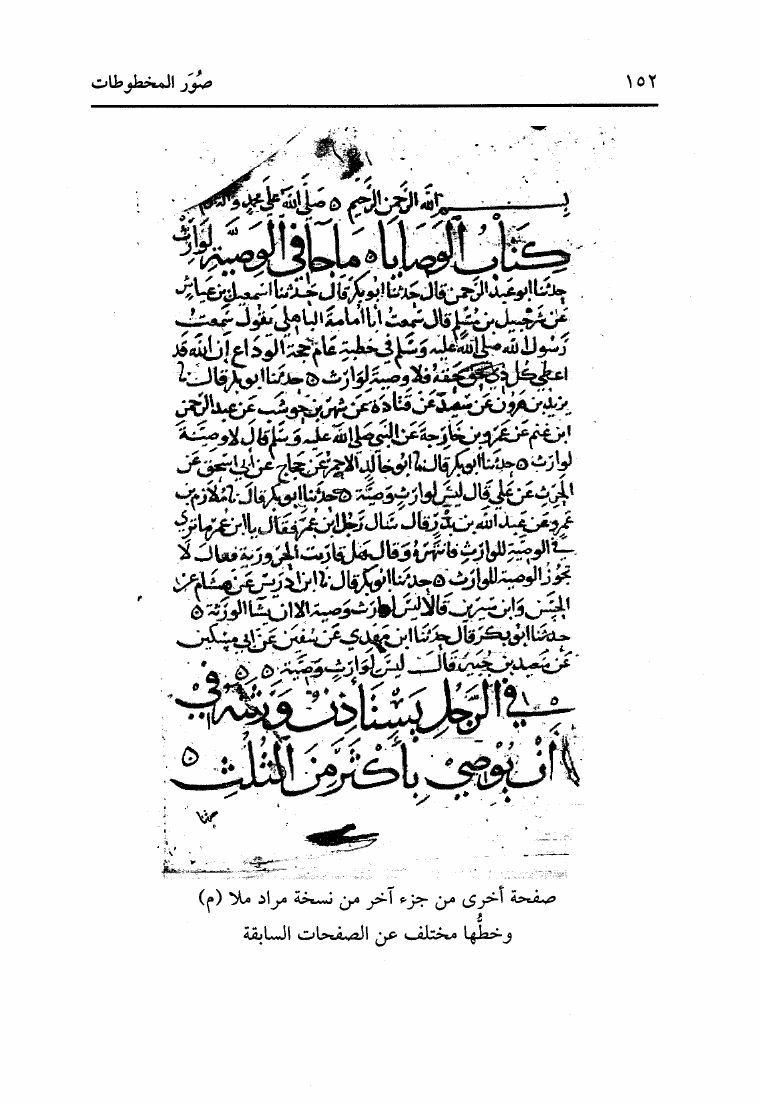 ١٥٢ صُوَر المخطوطات
بسم الله الرحمن الرحيم ٥ صلى الله على محمد
كتاب الوصايا ٥ ما جا في الوصية لوارث
حدثنا ابو عبد الرحمن قال حدثنا ابو بكر قال حدثنا اسمعيل بن عياش
عن شرحبيل بن مسلم قال سمعت ابا امامة الباهلي يقول سمعت
رسول الله صلى الله عليه وسلم في خطبته عام حجة الوداع ان الله قد
اعطى كل ذي حق حقه فلا وصية لوارث ٥ حدثنا ابو بكر قال نا
يزيد بن هرون عن سعيد عن قتادة عن شهر بن حوشب عن عبد الرحمن
ابن غنم عن عمرو بن خارجة عن النبي صلى الله عليه وسلم قال لا وصية
لوارث ٥ حدثنا ابو بكر قال نا ابو خالد الاحمر عن حجاج عن ابي اسحق عن
الحرث عن علي قال ليس لوارث وصية ٥ حدثنا ابو بكر قال نا ملازم بن
عمرو عن عبد الله بن بدر قال سال رجل ابن عمر فقال يا ابن عمر ما ترى
في الوصية للوارث فانتهره وقال هل قاربت الحرورية فقال لا
تجوز الوصية للوارث ٥ حدثنا ابو بكر قال نا ابن ادريس عن هشام عن
الحسن وابن سيرين قالا ليس لوارث وصية الا ان يشا الورثة ٥
حدثنا ابو بكر قال حدثنا ابن مهدي عن سفين عن ابي مسكين
عن سعيد بن جبير قال ليس لوارث وصية ٥ ٥ ٥
٥ في الرجل يستاذن ورثته في
ان يوصي باكثر من الثلث ٥
حدثنا
صفحة أخرى من جزء آخر من نسخة مراد ملا (م)
وخطُّها مختلف عن الصفحات السابقة